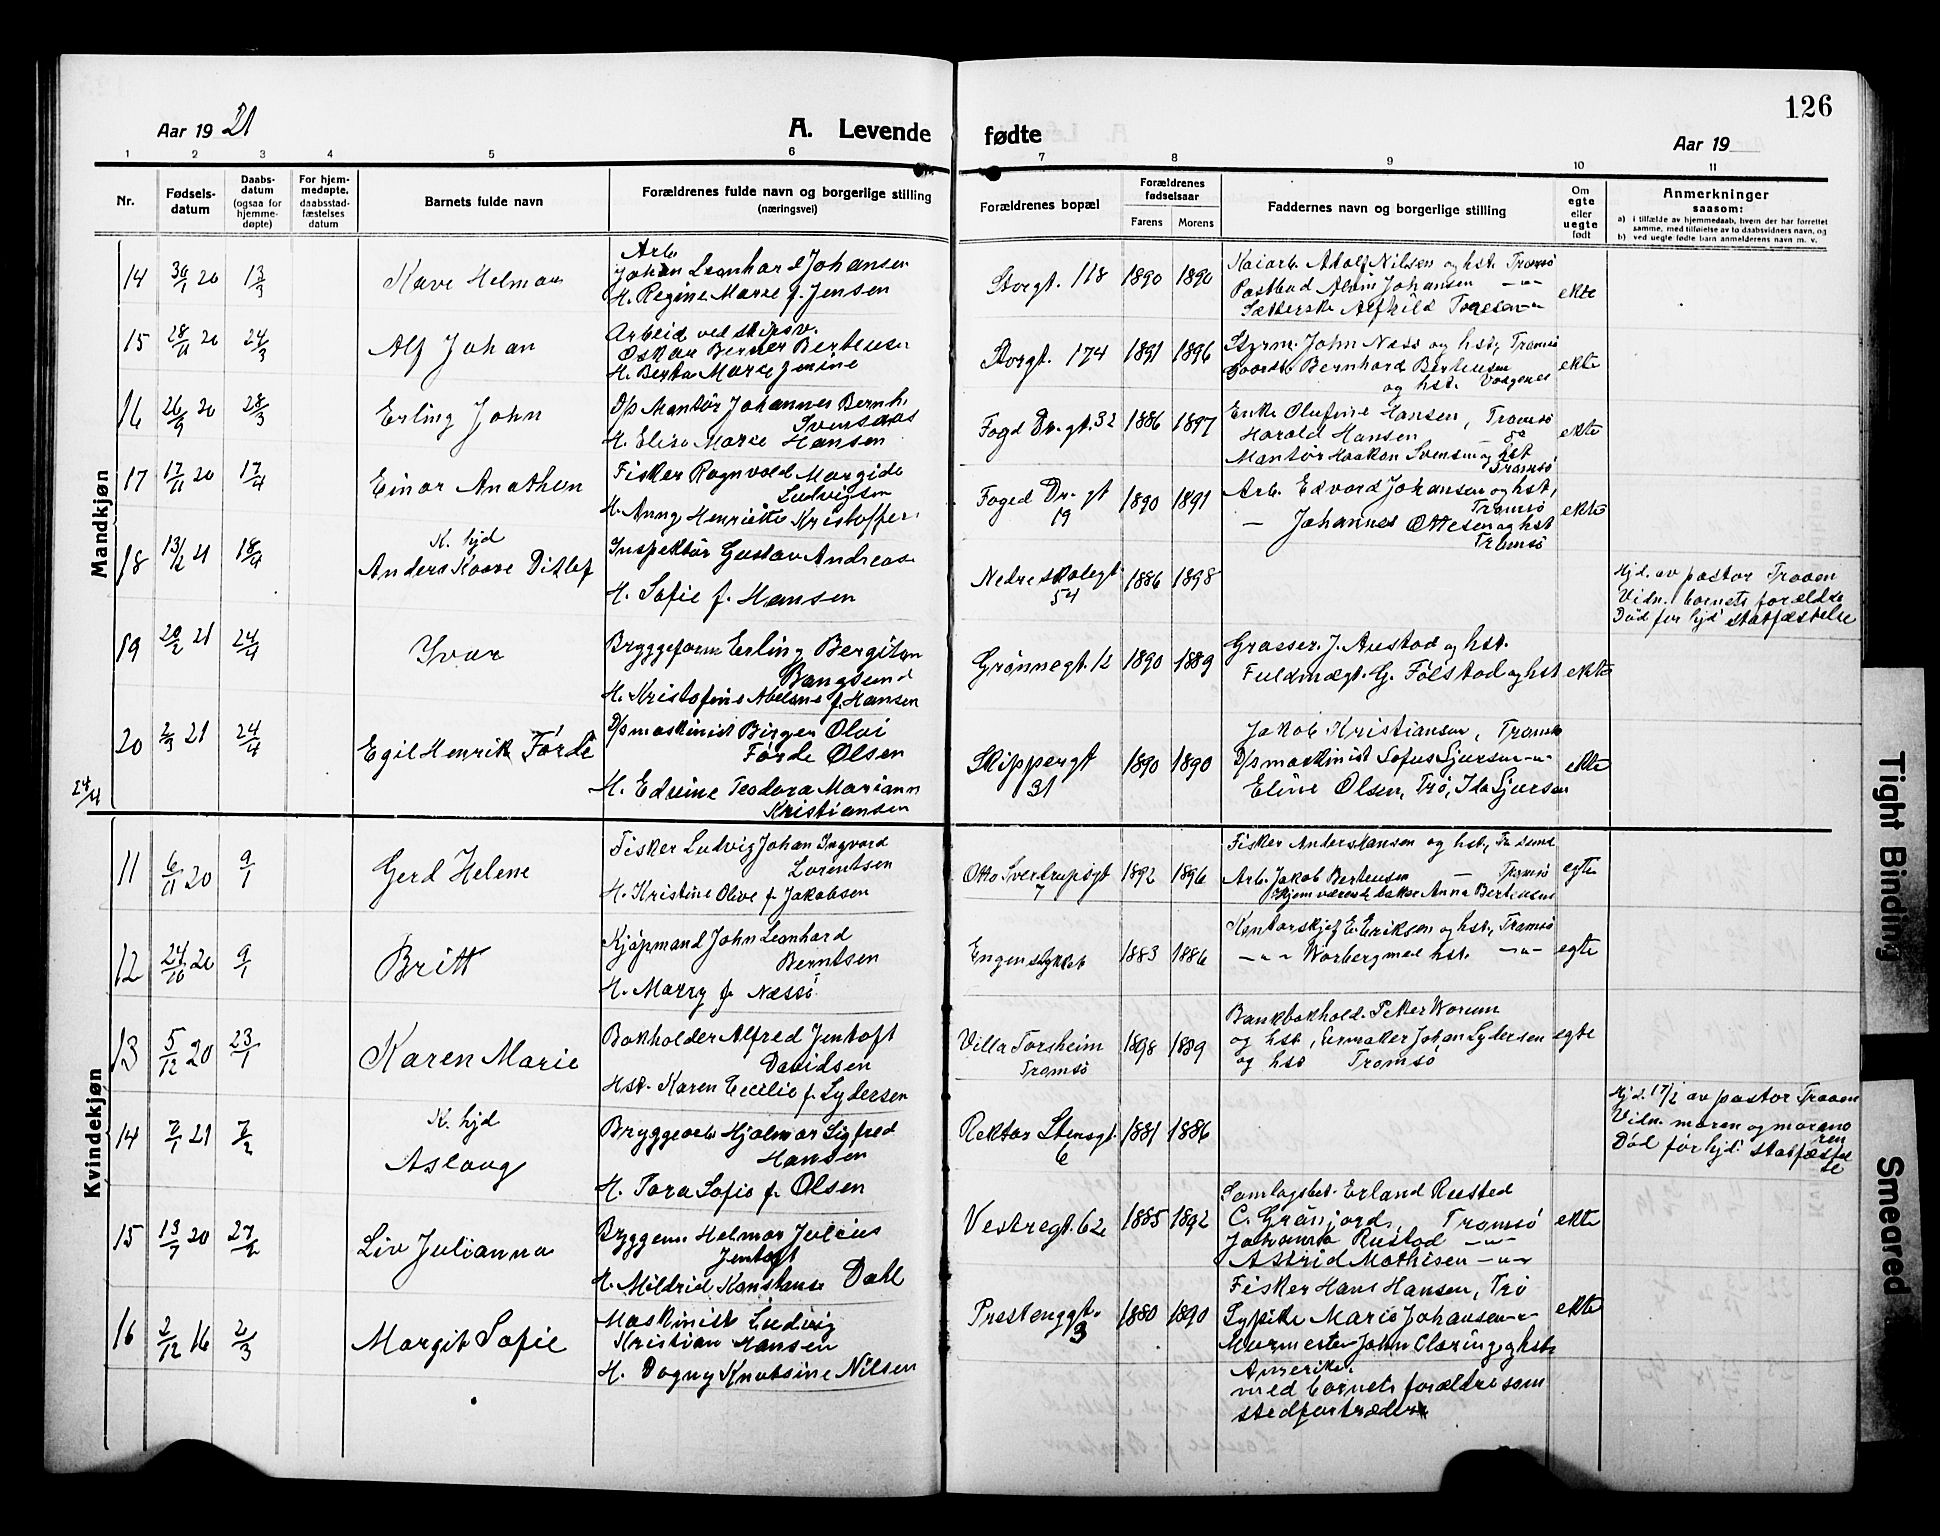 126
Aar 1921
A. Levende fødte
Aar 19
1 2 3 4 5 6 7 8 9 10 11
Nr.
Fødsels-datum
Daabs-datum (ogsaa for hjemme-døpte)
For hjem-medøpte, daabsstad-fæstelses datum
Barnets fulde navn
Forældrenes fulde navn og borgerlige stilling
(næringsvei)
Forældrenes bopæl
Forældrenes fødselsaar
Farens Morens
Faddernes navn og borgerlige stilling
Om egte eller uegte født
Anmerkninger
saasom:
a) i tilfælde av hjemmedaab, hvem der har forrettet samme, med tilføielse av to daabsvidners navn, og
b) ved uegte fødte barn anmelderens navn m. v.
Mandkjøn
14 30/1 20 13/3 Kaare Helman
Arb.
Johan Leonhard Johansen
H. Regine Marie f. Jensen
Storgt. 118 1890 1890
Kaiarb. Adolf Nilsen og hst. Tromsø
Postbud Alvin Johansen -"-
Alfhild
ekte
15 28/11 20 24/3 Alf Johan
Arbeid ved skipsv.
Oskar Berner Bertensen
H. Berta Marie Jenine
Storgt. 174 1891 1896
Styrm. John Næss og hst, Tromsø
Bernhard Bertensen
og hst.
ekte
16 26/9 20 28/3 Erling John
D/s Mantør Johannes Bernh.
Svensaas
H. Elise Marie Hansen
Fogd Dr. gt. 32 1886 1897
Enke Olufine Hansen, Tromsø
Harald Hansen do
Mantør Haakon Svensen og hst
Tromsø
ekte
17 17/11 20 17/4 Einar Anathon
Fisker Ragnvald Margido
Ludvigsen
H. Anny Henriette Kristoffer
Foged Dr. gt
19
1890 1891
Arb. Edvard Johansen og hst,
Tromsø
— Johannes Ottesen og hst
Tromsø
ekte
18 13/2 21 18/4
K. hjd
Anders Kaare Ditlef
Inspektør Gustav Andreas
H. Sofie f. Hansen
Nedre skolegt
54
1886 1898
Hjd. av pastor Traaen
Vidn. barnets forældre
Død før hjd statfæstelse
19 20/2 21 24/4 Ivar
Bryggeform Erling Bergiton
Bangsund
H. Kristofine Abelone f. Hansen
Grønnegt. 12 1890 1889
Grosser. J. Austad og hst.
Fuldmægt. G. Følstad og hst
ekte
20 2/3 21 24/4 Egil Henrik Førde
D/s maskinist Birger Olai
Førde Olsen
H. Edvine Teodora Mariann
Kristiansen
Skippergt
31
1890 1890
Jakob Kristiansen, Tromsø
D/s maskinist Sofus Sjursen -"-
Eline Olsen, Trø, Ida Sjursen
ekte
24/4
Kvindekjøn
11 6/11 20 9/1 Gerd Helene
Fisker Ludvig Johan Ingvard
Lorentsen
H. Kristine Olive f. Jakobsen
Otto Sverdrupsgt
7
1892 1896
Fisker Anders Hansen og hst, Tr. sund
Arb. Jakob Bertensen — Tromsø
Hjemværende datter Anna Bertensen
egte
12 24/10 20 9/1 Britt
Kjøpmand John Leonhard
Berntsen
H. Marry f. Næssø
Engenstykket 1883 1886
Kontorskjef E. Eriksen og hst, Tromsø
-"- Worberg med hst. -"-
egte
13 5/12 20 23/1 Karen Marie
Bokholder Alfred Jentoft
Davidsen
Hst. Karen Cecilie f. Lydersen
Villa Forsheim
Tromsø
1898 1889
Bankbokhold. Peter Worum
og hst, Urmaker Johan Lydersen
og hst Tromsø
egte
14 7/1 21 7/2
K. hjd
Aslaug
Bryggearb Hjalmar Sigfred
Hansen
H. Tora Sofie f. Olsen
Rektor Stensgt.
6
1881 1886
Hjd. 17/1 av pastor Traaen
Vidn. moren og mormo
ren
Død før hjd. statfæstel
se
15 13/7 20 27/2 Liv Julianna
Byggem Helmar Julius
Jentoft
H. Mildrid Konstanse Dahl
Vestregt. 62 1885 1892
Samlagsbest. Erland Rusted
C. Grønfjord, Tromsø
Johanna Rustad -"-
Astrid Mathisen -"-
ekte
16 2/12 16 2/3 Margit Sofie
Maskinist Ludvig
Kristian Hansen
H. Dagny Knutsine Nilsen
Prestenggt.
3
1880 1890
Fisker Hans Hansen, Trø
Sypike Marie Johansen -"-
Murmester John Claring og hst.
Amerika.
med barnets forældre som
stedfortræder
ekte
Tight Binding
Smeared